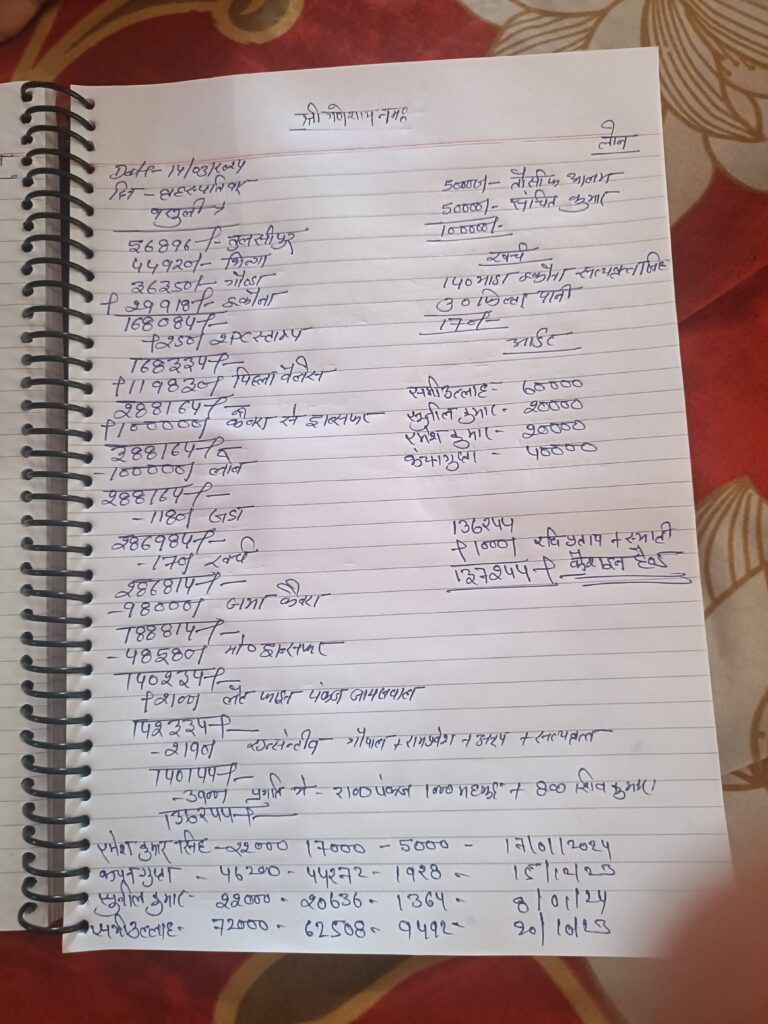 श्री गणेशाय नमः
लोन
Date- 14/03/2024
दिन - वृहस्पतिवार
वसूली →
56896/- तुलसीपुर
44920/- भिन्गा
36350/- गोंडा
+ 29918/- इकौना
168084/-
+250/ SPC स्टाम्प
168334/-
+119830/ पिछला बैलेंस
288164/-
+100000/ कैश से ट्रान्सफर
388164/-
-100000/ लोन
288164/-
-1180/
286984/-
-170/ खर्च
286814/-
-98000/ जमा कैश
188814/-
-48580/ ट्रान्सफर
140234/-
+2100/ लेट पंकज जायसवाल
142334/-
-2190/ इन्सेन्टीव गोपाल + रामप्रवेश + + सत्यव्रत
140144/-
-3900/ प्रगति से - 2100 पंकज 1000 + 800 शिव कुमार
136244/-
50000/- तौसीफ आलम
50000/- संचित कुमार
100000/-
खर्च
140 भाड़ा इकौना सत्यव्रत सिंह
30 पानी
170/-
आडिट
समीउल्लाह - 60000
सुनील कुमार - 20000
रमेश कुमार - 20000
कंचन गुप्ता - 40000
136244
+1000/ रवि प्रताप +
137244/- कैश इन हैंड
रमेश कुमार सिंह - 22000 17000 - 5000 - 17/01/2024
कंचन गुप्ता - 46200 - 44272 - 1928 - 15/12/23
सुनील कुमार - 22000 - 20636 - 1364 - 8/01/24
समीउल्लाह - 72000 - 62508 - 9492 - 20/10/23